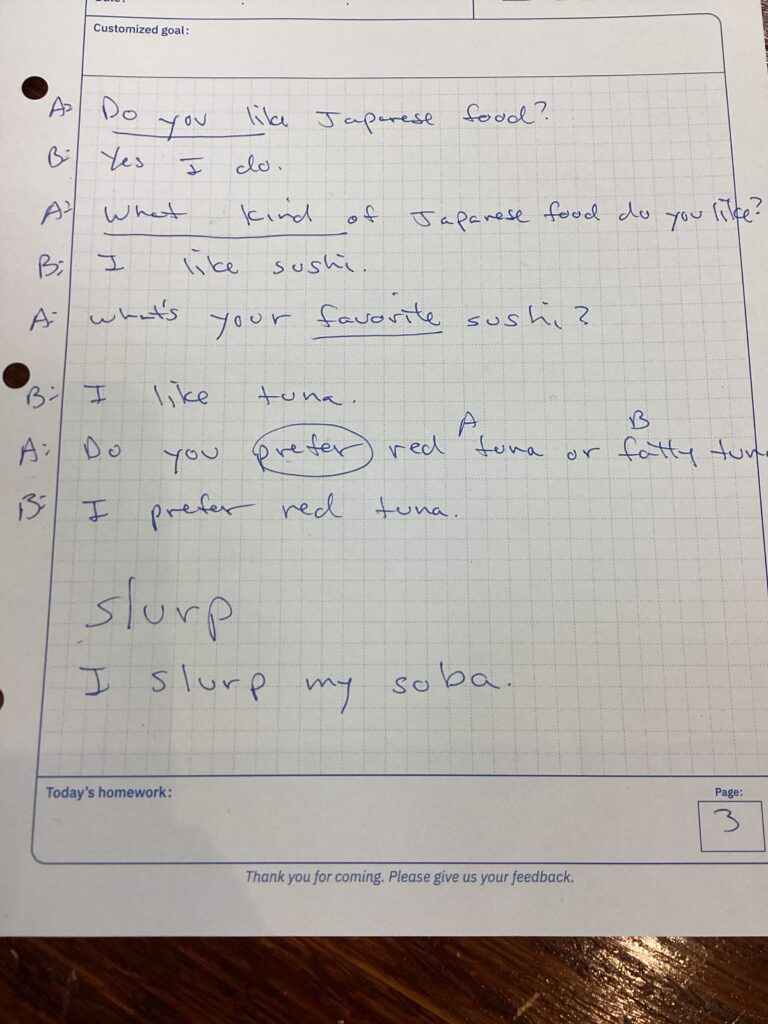 Customized goal:
A: Do you like Japanese food?
B: Yes I do.
A: What kind of Japanese food do you like?
B: I like sushi.
A: What's your favorite sushi?
B: I like tuna.
A B
A: Do you prefer red tuna or fatty tun
B: I prefer red tuna.
slurp
I slurp my soba.
Today's homework:
Page:
3
Thank you for coming. Please give us your feedback.